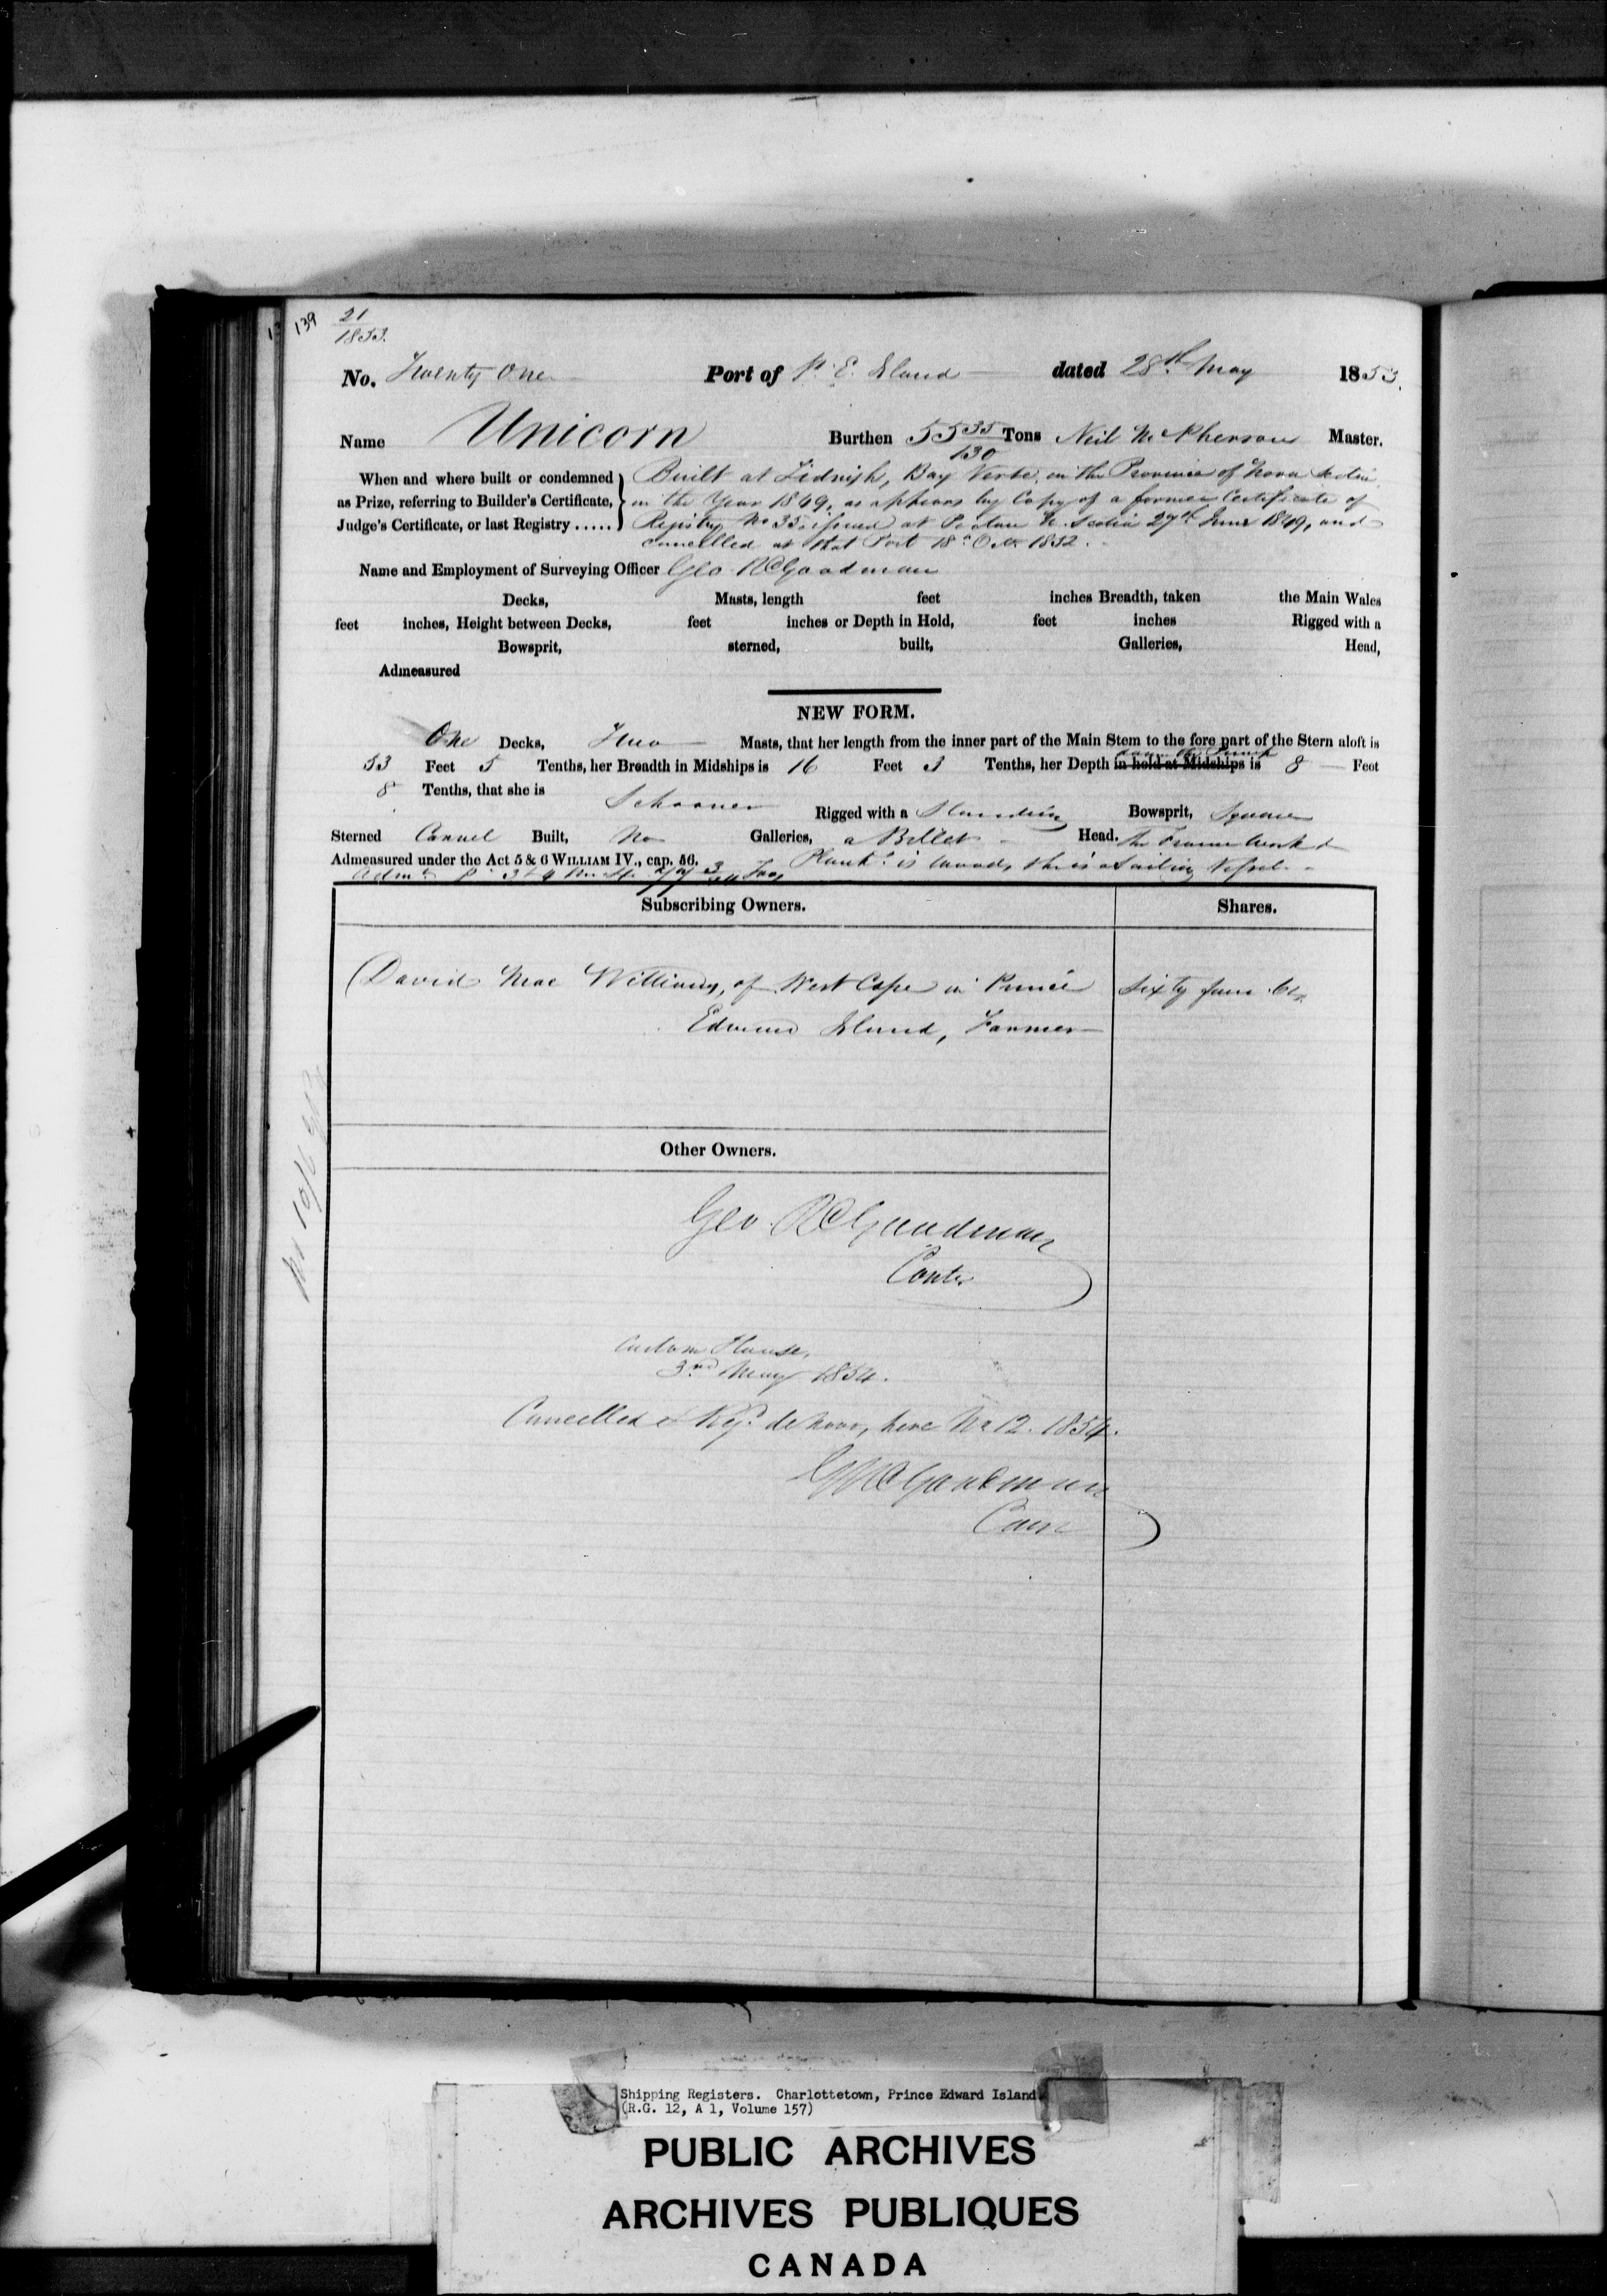 139
21
1853.
No. Twenty One Port of P. E. Island dated 28th May 1853.
Name Unicorn Burthen 55 35/130 Tons Neil McPherson Master.
When and where built or condemned as Prize, referring to Builder's Certificate, Judge's Certificate, or last Registry.....
Built at Tidnish, Bay Verte, in the Province of Nova Scotia
in the Year 1849, as appears by Copy of a former Certificate of
Registry No 35 issued at Pictou N. Scotia 27th June 1849, and
cancelled at that Port 18th Octr 1852.
Name and Employment of Surveying Officer Geo. Goodman
Decks, Masts, length feet inches Breadth, taken the Main Wales
feet inches, Height between Decks, feet inches or Depth in Hold, feet inches Rigged with a
Bowsprit, sterned, built, Galleries, Head,
Admeasured
NEW FORM.
One Decks, Two Masts, that her length from the inner part of the Main Stem to the fore part of the Stern aloft is
53 Feet 5 Tenths, her Breadth in Midships is 16 Feet 3 Tenths, her Depth in hold at Midships is 8 Feet
8 Tenths, that she is Schooner Rigged with a Standing Bowsprit, Square
Sterned Carvel Built, No Galleries, a Billet Head. the Frame Work &
Admeasured under the Act 5 & 6 WILLIAM IV., cap. 56. Plankg is wood, she is a Sailing Vessel.
Subscribing Owners. Shares.
David Mac Williams, of West Cape in Prince Sixty four 64
Edward Island, Farmer
Other Owners.
Geo. Goodman
Contr
Custom House,
3rd May 1854.
Cancelled & Regd de novo, here No 12. 1854.
Goodman
Shipping Registers. Charlottetown, Prince Edward Island
(R.G. 12, A 1, Volume 157)
PUBLIC ARCHIVES
ARCHIVES PUBLIQUES
CANADA